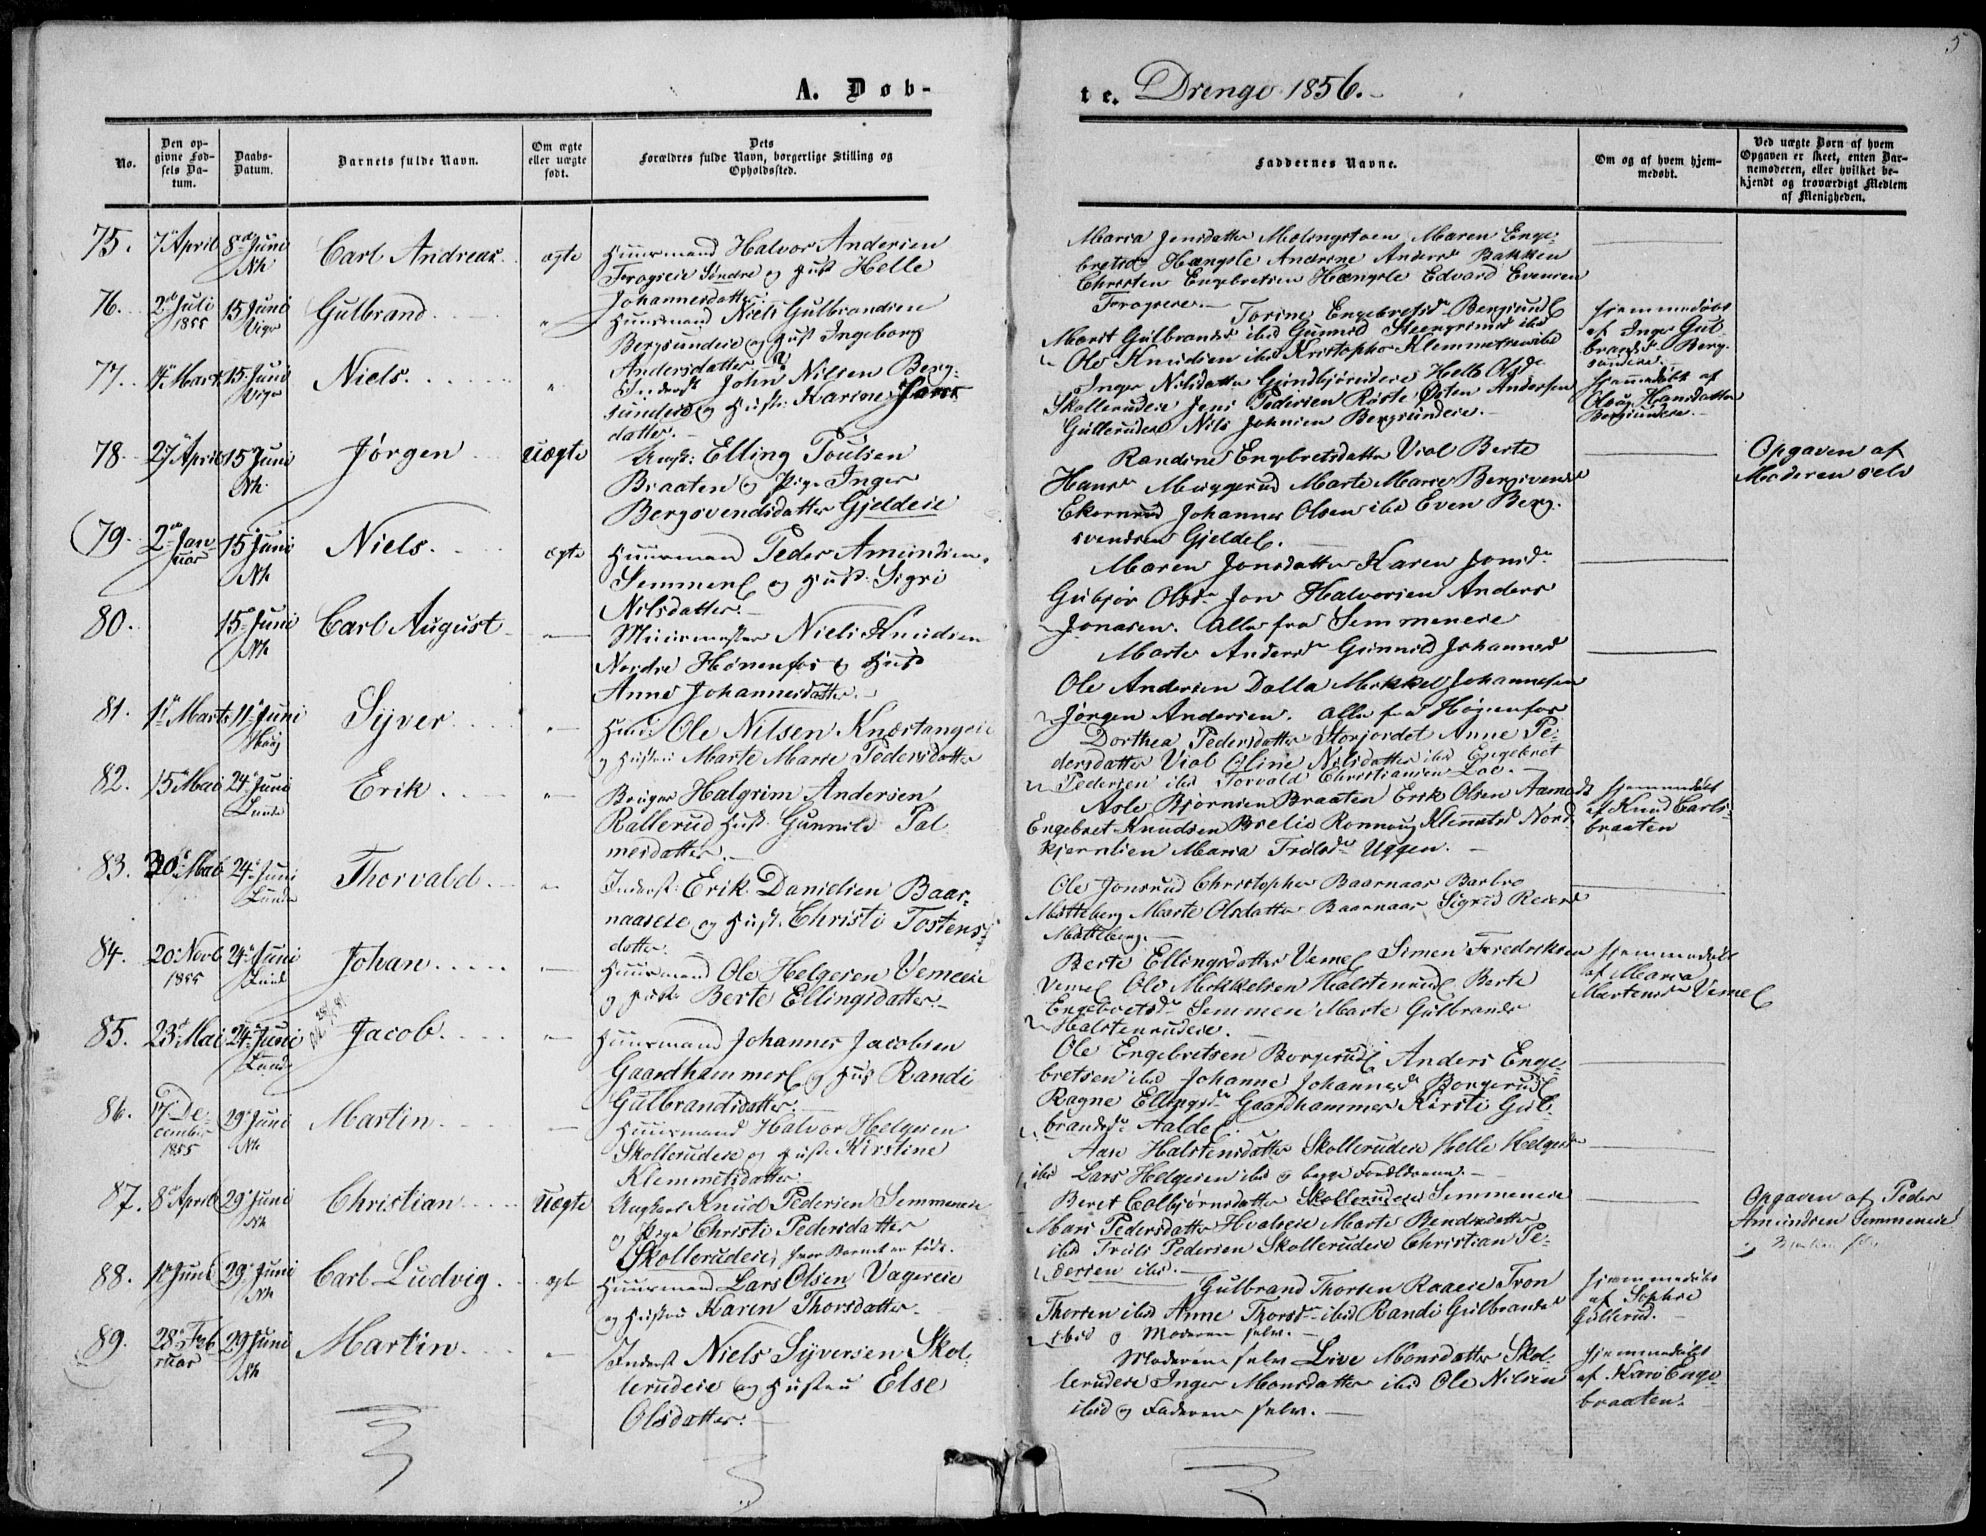 5
A. Døb-
te. Drenge 1856.
No.
Den op-
givne Fød-
sels Da-
tum.
Daabs-
Datum.
Barnets fulde Navn.
Om ægte
eller uægte
født.
Dets
Forældres fulde Navn, borgerlige Stilling og
Opholdssted.
Faddernes Navne.
Om og af hvem hjem-
medøbt.
Ved uægte Børn af hvem
Opgaven er skeet, enten Bar-
nemoderen, eller hvilket be-
kjendt og troværdigt Medlem
af Menigheden.
75. 7 April 8 Juni Nh. Carl Andreas ægte Huusmand Halvor Andersen
Frogneie Søndre og Hust Helle
Johannesdatter.
Maria Jensdatter Maren Enge-
bretsd. Hængsle Andrine Anders Bakken
Christen Engebretsen Hængsle Edvard Evensen
76. 2 Juli 1855 15 Juni Viger Gulbrand " Huusmand Niels Gulbrandsen
Bergsundeie og Hust Ingeborg
Andersdatter
Torine Engebretsd. Bergsund
Marit Gulbrandsd ibd Gunnild Steengrimsd ibd
Ole Knudsen ibd Kristopher Klemmetsen ibd
Hjemmedøbt
af Inger Gul-
brandsd. Berg-
sundeie.
77. 15 Juni Viger Niels. " Inderst John Nilsen Berg-
sundeie og Hust: Karine Jons-
datter.
Inger Nilsdatter Helle Olsd.
Skollerudeie Jens Pedersen Røste Østen Andersen
Gullerudeie Nils Johnsen Bergsundeie.
Hjemmedøbt af
Hansdatter
Bergsundeie.
78. 27 April 15 Juni Nh. Jørgen uægte Ungk: Elling Poulsen
Braaten og Pige Inger
Bergsvendsdatter Gjeldeie
Randine Engebretsdatter Viol Berte
Hansd. Muggerud Marte Marie Bergsvendsd
Ekornrud Johannes Olsen ibd Even Berg-
svendsen Gjeldel.
Opgaven af
Moderen selv
79. 2 Jan-
uar 15 Juni Nh Niels. ægte Huusmand Peder Amundsen
Semmen og Hust: Sigri
Nilsdatter.
Maren Jonsdatter Karen Jonsd.
Gubjør Olsd. Jon Halvorsen Anders
Jonasen. Alle fra Semmeneie
80. 15 Juni Nh Carl August Muurmester Niels Knudsen
Nordre Hønenfos og Hust
Anne Johannesdatter.
Marte Andersd. Gunnild Johannesd
Ole Andersen Dalla Mikkel Johannesen
Jørgen Andersen. Alle fra Hønenfos
81. 1 Marts 17 Juni Haug Syver Huusm: Ole Nilsen Knæstangeie
og Hustru Marte Marie Pedersdatter
Dorthea Pedersdatter Storjordet Anne Pe-
dersdatter Viol Oline Nilsdatter ibd Engebret
Pedersen ibd Torvald Christiansen Loe.
82. 15 Mai 24 Juni Lunde Erik. Bruger Halgrim Andersen
Rallerud Hust Gunnild Pal-
mesdatter.
Asle Bjørnsen Braaten Erik Olsen Aamodt
Engebret Knudsen Brelie Ronnoug Klemetsd. Nord-
kjernlien Maria Trulsd. Uggen.
Hjemmedøbt
af Knud Carls-
braaten
83. 30 Mai 24 Juni Lunde Thorvald. Inderst: Erik Danielsen Baar-
naaseie og Hust. Christi Tostens-
datter.
Ole Jonsrud Christopher Baarnaas Barbro
Motteberg Marte Olsdatter Baarnaas Sigrid Reiersd
Motteberg.
84. 20 Novb 1855 24 Juni Lunde Johan. Huusmand Ole Helgesen Vemeeie
og Hust: Berte Ellingsdatter.
Berte Ellingsdatter Vemel Simen Fredriksen
Vemel Ole Mikkelsen Halstenrud Berte
Engebretsd. Semmen Marte Gulbrandsd
Halstenrudeie.
Hjemmedøbt
af Maria
Martensd. Vemel
85. 23 Mai 24 Juni Lunde Jacob. Huusmand Johannes Jacobsen
Gaardhammer og Hust Randi
Gulbrandsdatter.
Ole Engebretsen Borgerud Anders Enge-
bretsen ibd Johanne Johannesd. Borgerud
Ragne Ellingsd. Gaardhammer Kirsti Gul-
brandsd. Aalde.
86. 17 De-
cember
1855 29 Juni Nh. Martin. Huusmand Halvor Helgesen
Skollerudeie og Hust: Kirstine
Klemmetsdatter.
Aase Halstensdatter Skollerudeie Helle Helgesd
ibd Lars Helgesen ibd og begge Forældrene.
87. 8 April 29 Juni Nh Christian uægte Ungkarl Knud Pedersen Semmeneie
og Pige Christi Pedersdatter
Skollerudeie, hvor Barnet er født.
Beret Colbjørnsdatter Semmeneie
Mari Pedersdatter Hvalseie Marte Bendixdatter
ibd Truls Pedersen Skollerudeie Christian Pe-
dersen ibd.
Opgaven af Peder
Amundsen Semmeneie
88. 29 Juni Nh Carl Ludvig. ægt Huusmand Lars Olsen Vagereie
og Hustru Karen Thorsdatter.
Gulbrand Thorsen Raaeie Tron
Thorsen ibd Anne Thorsd. ibd Randi Gulbrandsd
ibd og Moderen selv.
Hjemmedøbt
af Sophie
Gullerud.
89. 28 Feb-
ruar 29 Juni Nh Martin. Inderst Niels Syversen Skol-
lerudeie og Hustru Else
Olsdatter.
Moderen selv Live Monsdatter Skol-
lerudeie Inger Monsdatter ibd Ole Nilsen
ibid og Faderen selv.
Hjemmedøbt
af Kari Enge-
braaten.